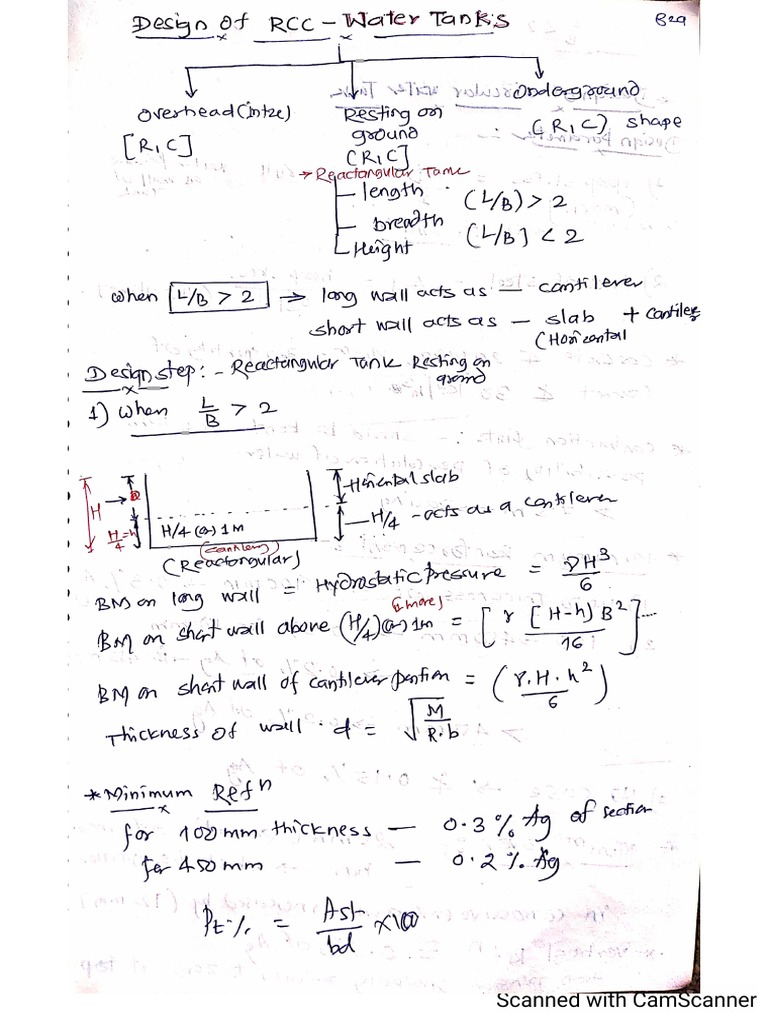 Design of RCC - Water Tanks
B29
overhead(intze)
[R,C]
Resting on
ground
(R,C]
Onderground
(R,C) shape
→ Reactangular Tame
length
breadth
Height
(L/B) > 2
(L/B] < 2
when L/B > 2 → long wall acts as — cantilever
short wall acts as — slab + cantilev
(Horizontal
Design step: - Reactangular Tank Resting on
ground
1) when L/B > 2
H
H/4 = h
H/4 (or) 1m
(cantilever)
(Reactangular)
Horizental slab
H/4 - acts as a cantilever
BM on long wall = Hydrostatic pressure = γH³/6
BM on short wall above (H/4) (or) 1m (↑more) = [γ [H-h) B²/16]
BM on short wall of cantilever portion = (γ.H.h²/6)
Thickness of wall . d = √M/R.b
* Minimum Refⁿ
for 100 mm thickness — 0.3% Ag of section
for 450 mm — 0.2% Ag
Pt% = Ast/bd ×100
Scanned with CamScanner